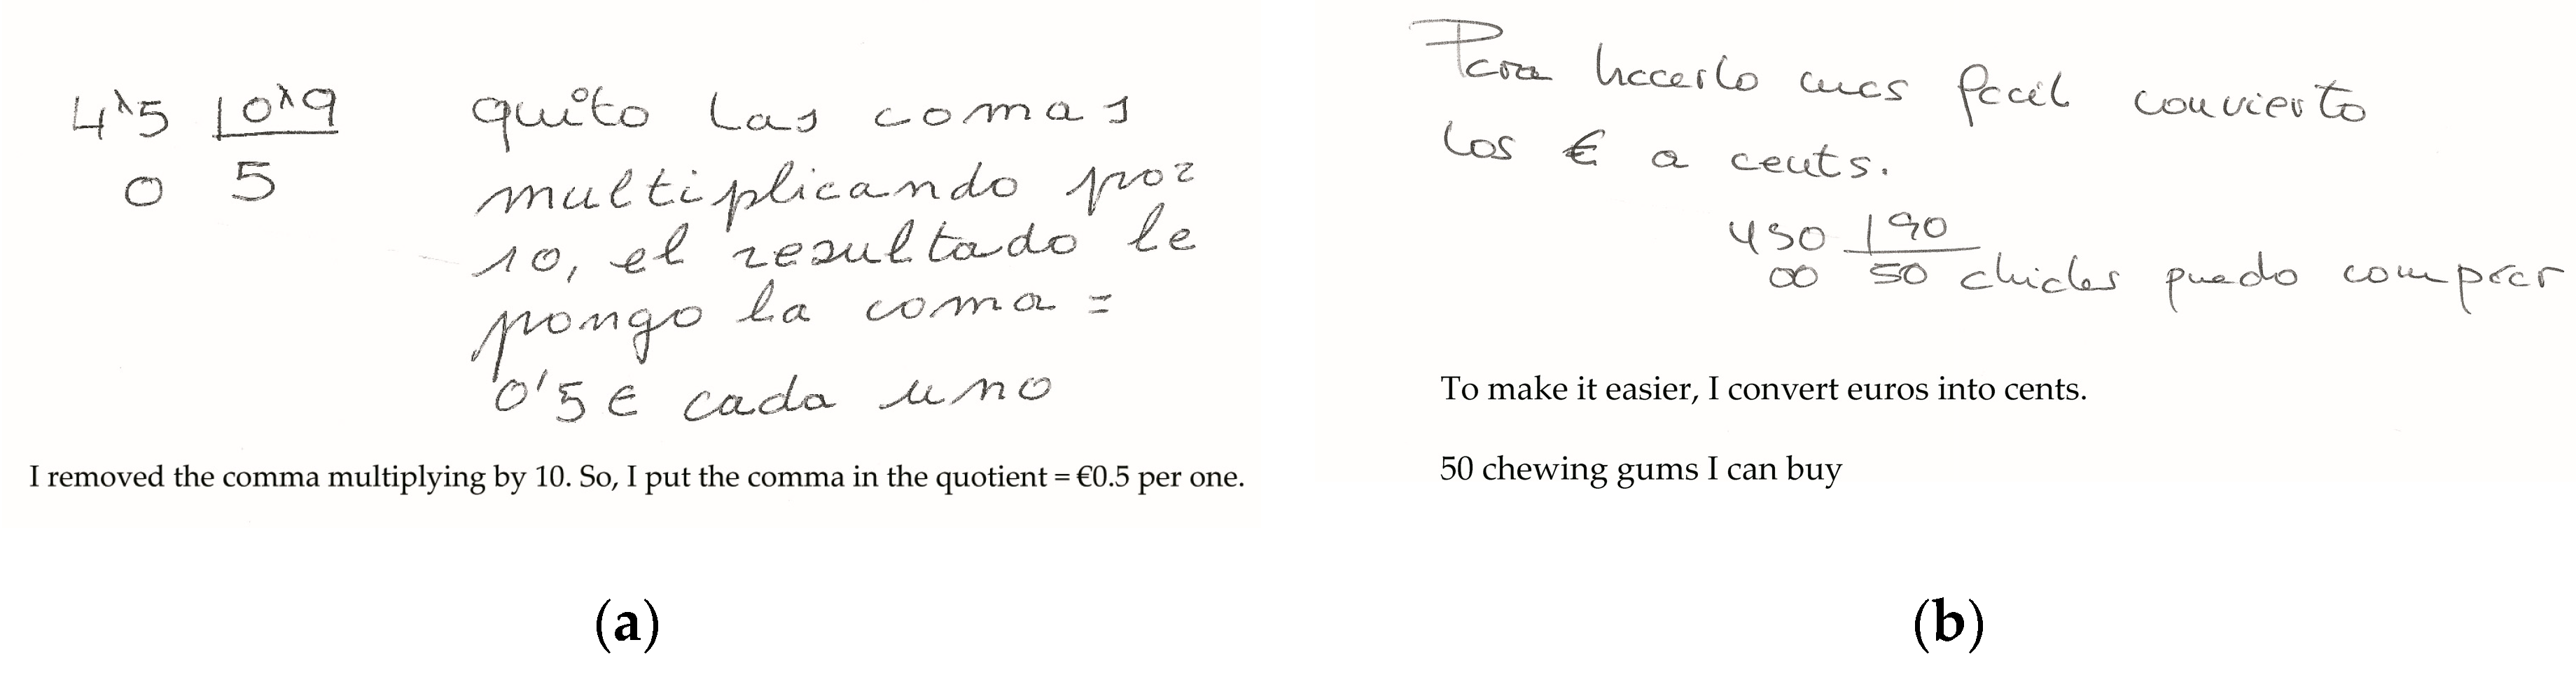 4'5 | 0'9
0 5
quito las comas
multiplicando por
10, el resultado le
pongo la coma =
0'5 € cada uno
I removed the comma multiplying by 10. So, I put the comma in the quotient = €0.5 per one.
(a)
Para hacerlo mas facil convierto
los € a cents.
450 | 90
00 50 chicles puedo comprar
To make it easier, I convert euros into cents.
50 chewing gums I can buy
(b)